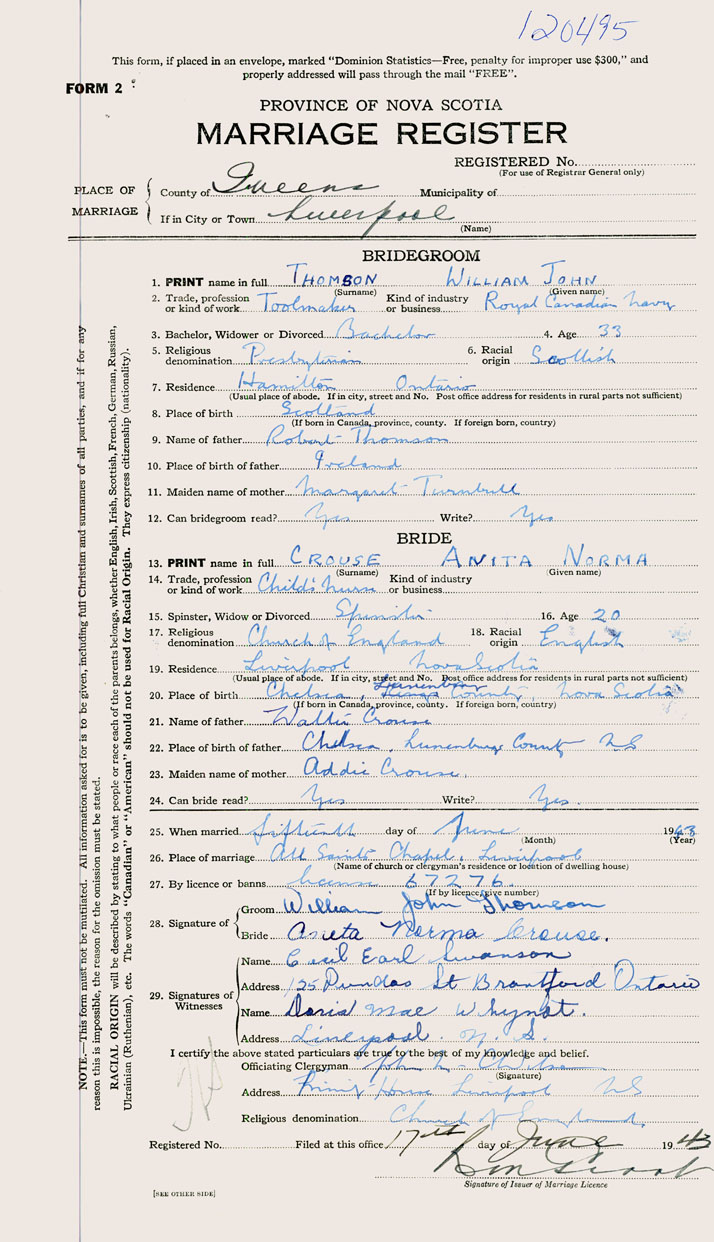 120495
This form, if placed in an envelope, marked "Dominion Statistics—Free, penalty for improper use $300," and
properly addressed will pass through the mail "FREE".
FORM 2
PROVINCE OF NOVA SCOTIA
MARRIAGE REGISTER
REGISTERED No.
(For use of Registrar General only)
PLACE OF MARRIAGE
County of Queens Municipality of
If in City or Town Liverpool
(Name)
BRIDEGROOM
1. PRINT name in full THOMSON WILLIAM JOHN
(Surname) (Given name)
2. Trade, profession or kind of work Toolmaker Kind of industry or business Royal Canadian Navy
3. Bachelor, Widower or Divorced Bachelor 4. Age 33
5. Religious denomination Presbyterian 6. Racial origin Scottish
7. Residence Hamilton Ontario
(Usual place of abode. If in city, street and No. Post office address for residents in rural parts not sufficient)
8. Place of birth Scotland
(If born in Canada, province, county. If foreign born, country)
9. Name of father Robert Thomson
10. Place of birth of father Ireland
11. Maiden name of mother Margaret Turnbull
12. Can bridegroom read? Yes Write? Yes
BRIDE
13. PRINT name in full CROUSE ANITA NORMA
(Surname) (Given name)
14. Trade, profession or kind of work Child's Nurse Kind of industry or business
15. Spinster, Widow or Divorced Spinster 16. Age 20
17. Religious denomination Church of England 18. Racial origin English
19. Residence Liverpool Nova Scotia
(Usual place of abode. If in city, street and No. Post office address for residents in rural parts not sufficient)
20. Place of birth Chelsea, Lunenburg County, Nova Scotia
(If born in Canada, province, county. If foreign born, country)
21. Name of father Walter Crouse
22. Place of birth of father Chelsea, Lunenburg County NS
23. Maiden name of mother Addie Crouse.
24. Can bride read? Yes Write? Yes.
25. When married fifteenth day of June 1943
(Month) (Year)
26. Place of marriage All Saints Chapel, Liverpool
(Name of church or clergyman's residence or location of dwelling house)
27. By licence or banns license 67276
(If by licence, give number)
28. Signature of
Groom William John Thomson
Bride Anita Norma Crouse.
29. Signatures of Witnesses
Name Cecil Earl Swanson
Address 125 Dundas St Brantford Ontario
Name Doris Mae Whynot.
Address Liverpool. N. S.
I certify the above stated particulars are true to the best of my knowledge and belief.
Officiating Clergyman John
(Signature)
Address Liverpool NS
Religious denomination Church of England.
Registered No. Filed at this office 17th day of June 1943
Signature of Issuer of Marriage Licence
[SEE OTHER SIDE]
NOTE.—This form must not be mutilated. All information asked for is to be given, including full Christian and surnames of all parties, and if for any
reason this is impossible, the reason for the omission must be stated.
RACIAL ORIGIN will be described by stating to what people or race each of the parents belongs, whether English, Irish, Scottish, French, German, Russian,
Ukrainian (Ruthenian), etc. The words "Canadian" or "American" should not be used for Racial Origin. They express citizenship (nationality).